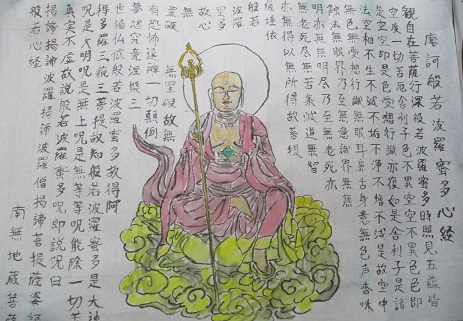 摩訶般若波羅蜜多心經
觀自在菩薩行深般若波羅蜜多時照見五蘊皆
空度一切苦厄舍利子色不異空空不異色色即
是空空即是色受想行識亦復如是舍利子是諸
法空相不生不滅不垢不淨不增不減是故空中
無色無受想行識無眼耳鼻舌身意無色声香味
觸法無眼界乃至無意識界無無
明亦無無明尽乃至無老死亦
無老死尽無苦集滅道無智
亦無得以無所得故菩提
薩埵依
般若
波羅
蜜多
故心
無
罣礙 無罣礙故無
有恐怖遠離一切顛倒
夢想究竟涅槃三
世諸佛依般若波羅蜜多故得阿
耨多羅三藐三菩提故知般若波羅蜜多是大神
呪是大明呪是無上呪是無等等呪能除一切苦
真実不虚故説般若波羅蜜多呪即説呪曰
揭諦揭諦波羅揭諦波羅僧揭諦菩提薩婆訶
般若心経
南無地蔵菩薩